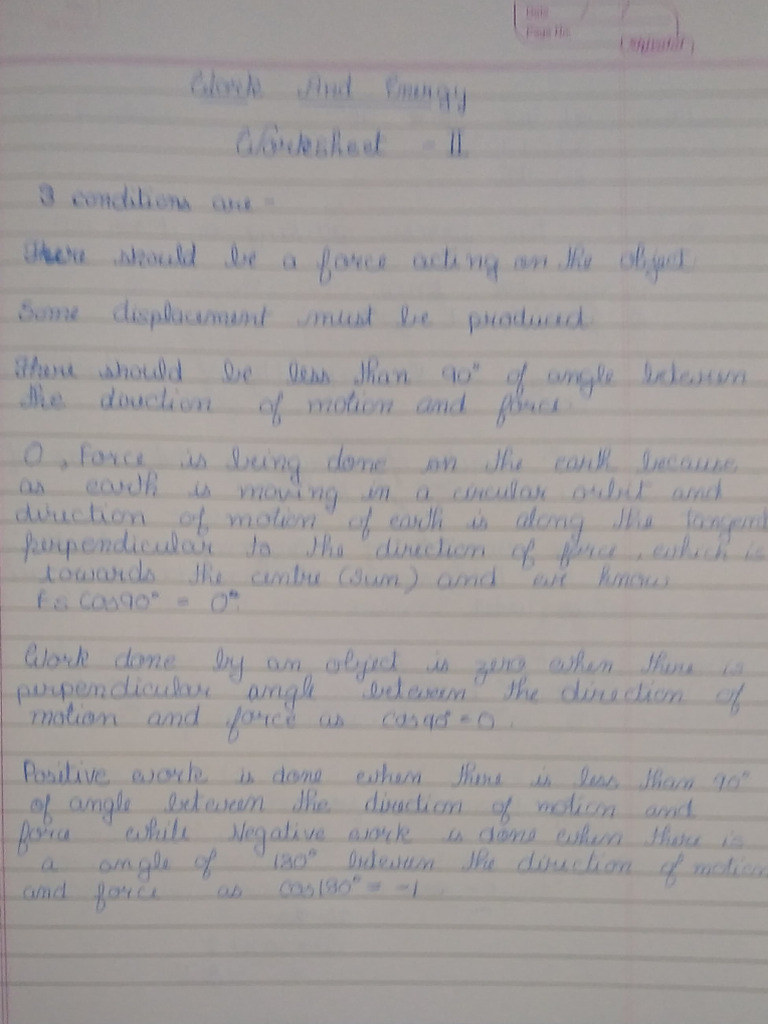 Date / /
Page No.
Work And Energy
Worksheet - II
3 conditions are -
There should be a force acting on the object
Some displacement must be produced
There should be less than 90° of angle between
the direction of motion and force.
0, Force is being done on the earth because
as earth is moving in a circular orbit and
direction of motion of earth is along the tangent
perpendicular to the direction of force, which is
towards the centre (sun) and we know
Fs Cos90° = 0°
Work done by an object is zero when there is
perpendicular angle between the direction of
motion and force as cos90° = 0.
Positive work is done when there is less than 90°
of angle between the direction of motion and
force while Negative work is done when there is
a angle of 180° between the direction of motion
and force as Cos180° = -1